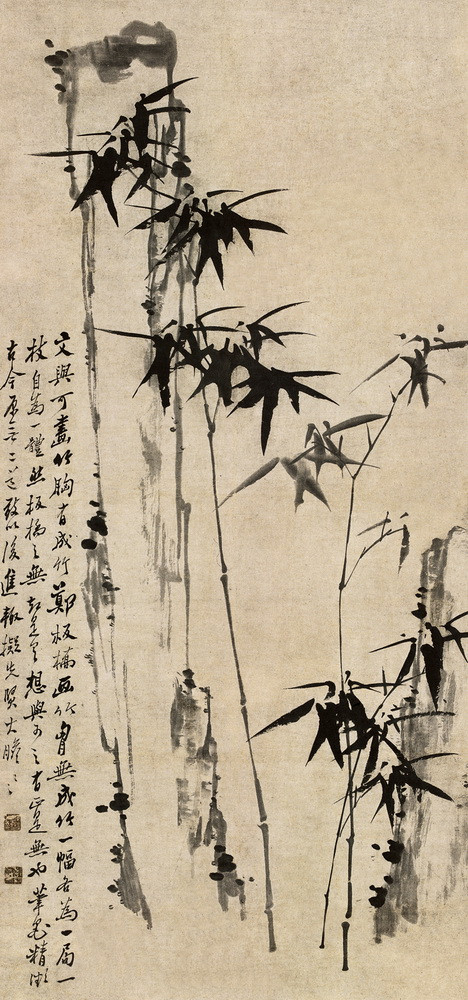 文與可畫竹胸有成竹鄭板橋画竹胸無成竹一幅各為一局一
枝自為一體然板橋之無却是想與可之有是無也筆墨精微
古今原无二道敢以後進輒擬先賢大膽